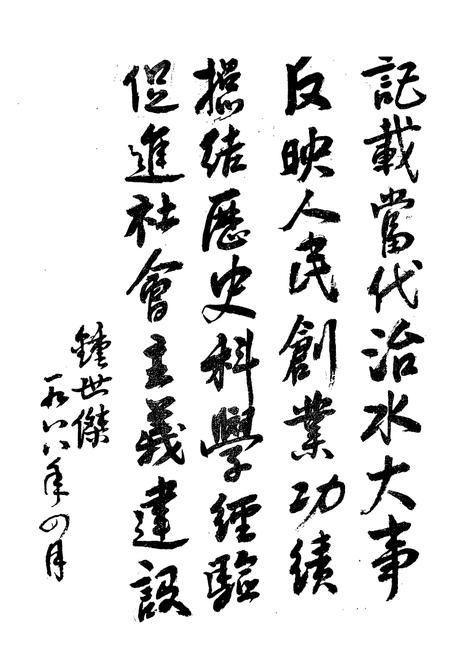 記載當代治水大事
反映人民創業功績
摠結歷史科學經驗
促進社會主義建設
鍾世傑
一九八八年四月